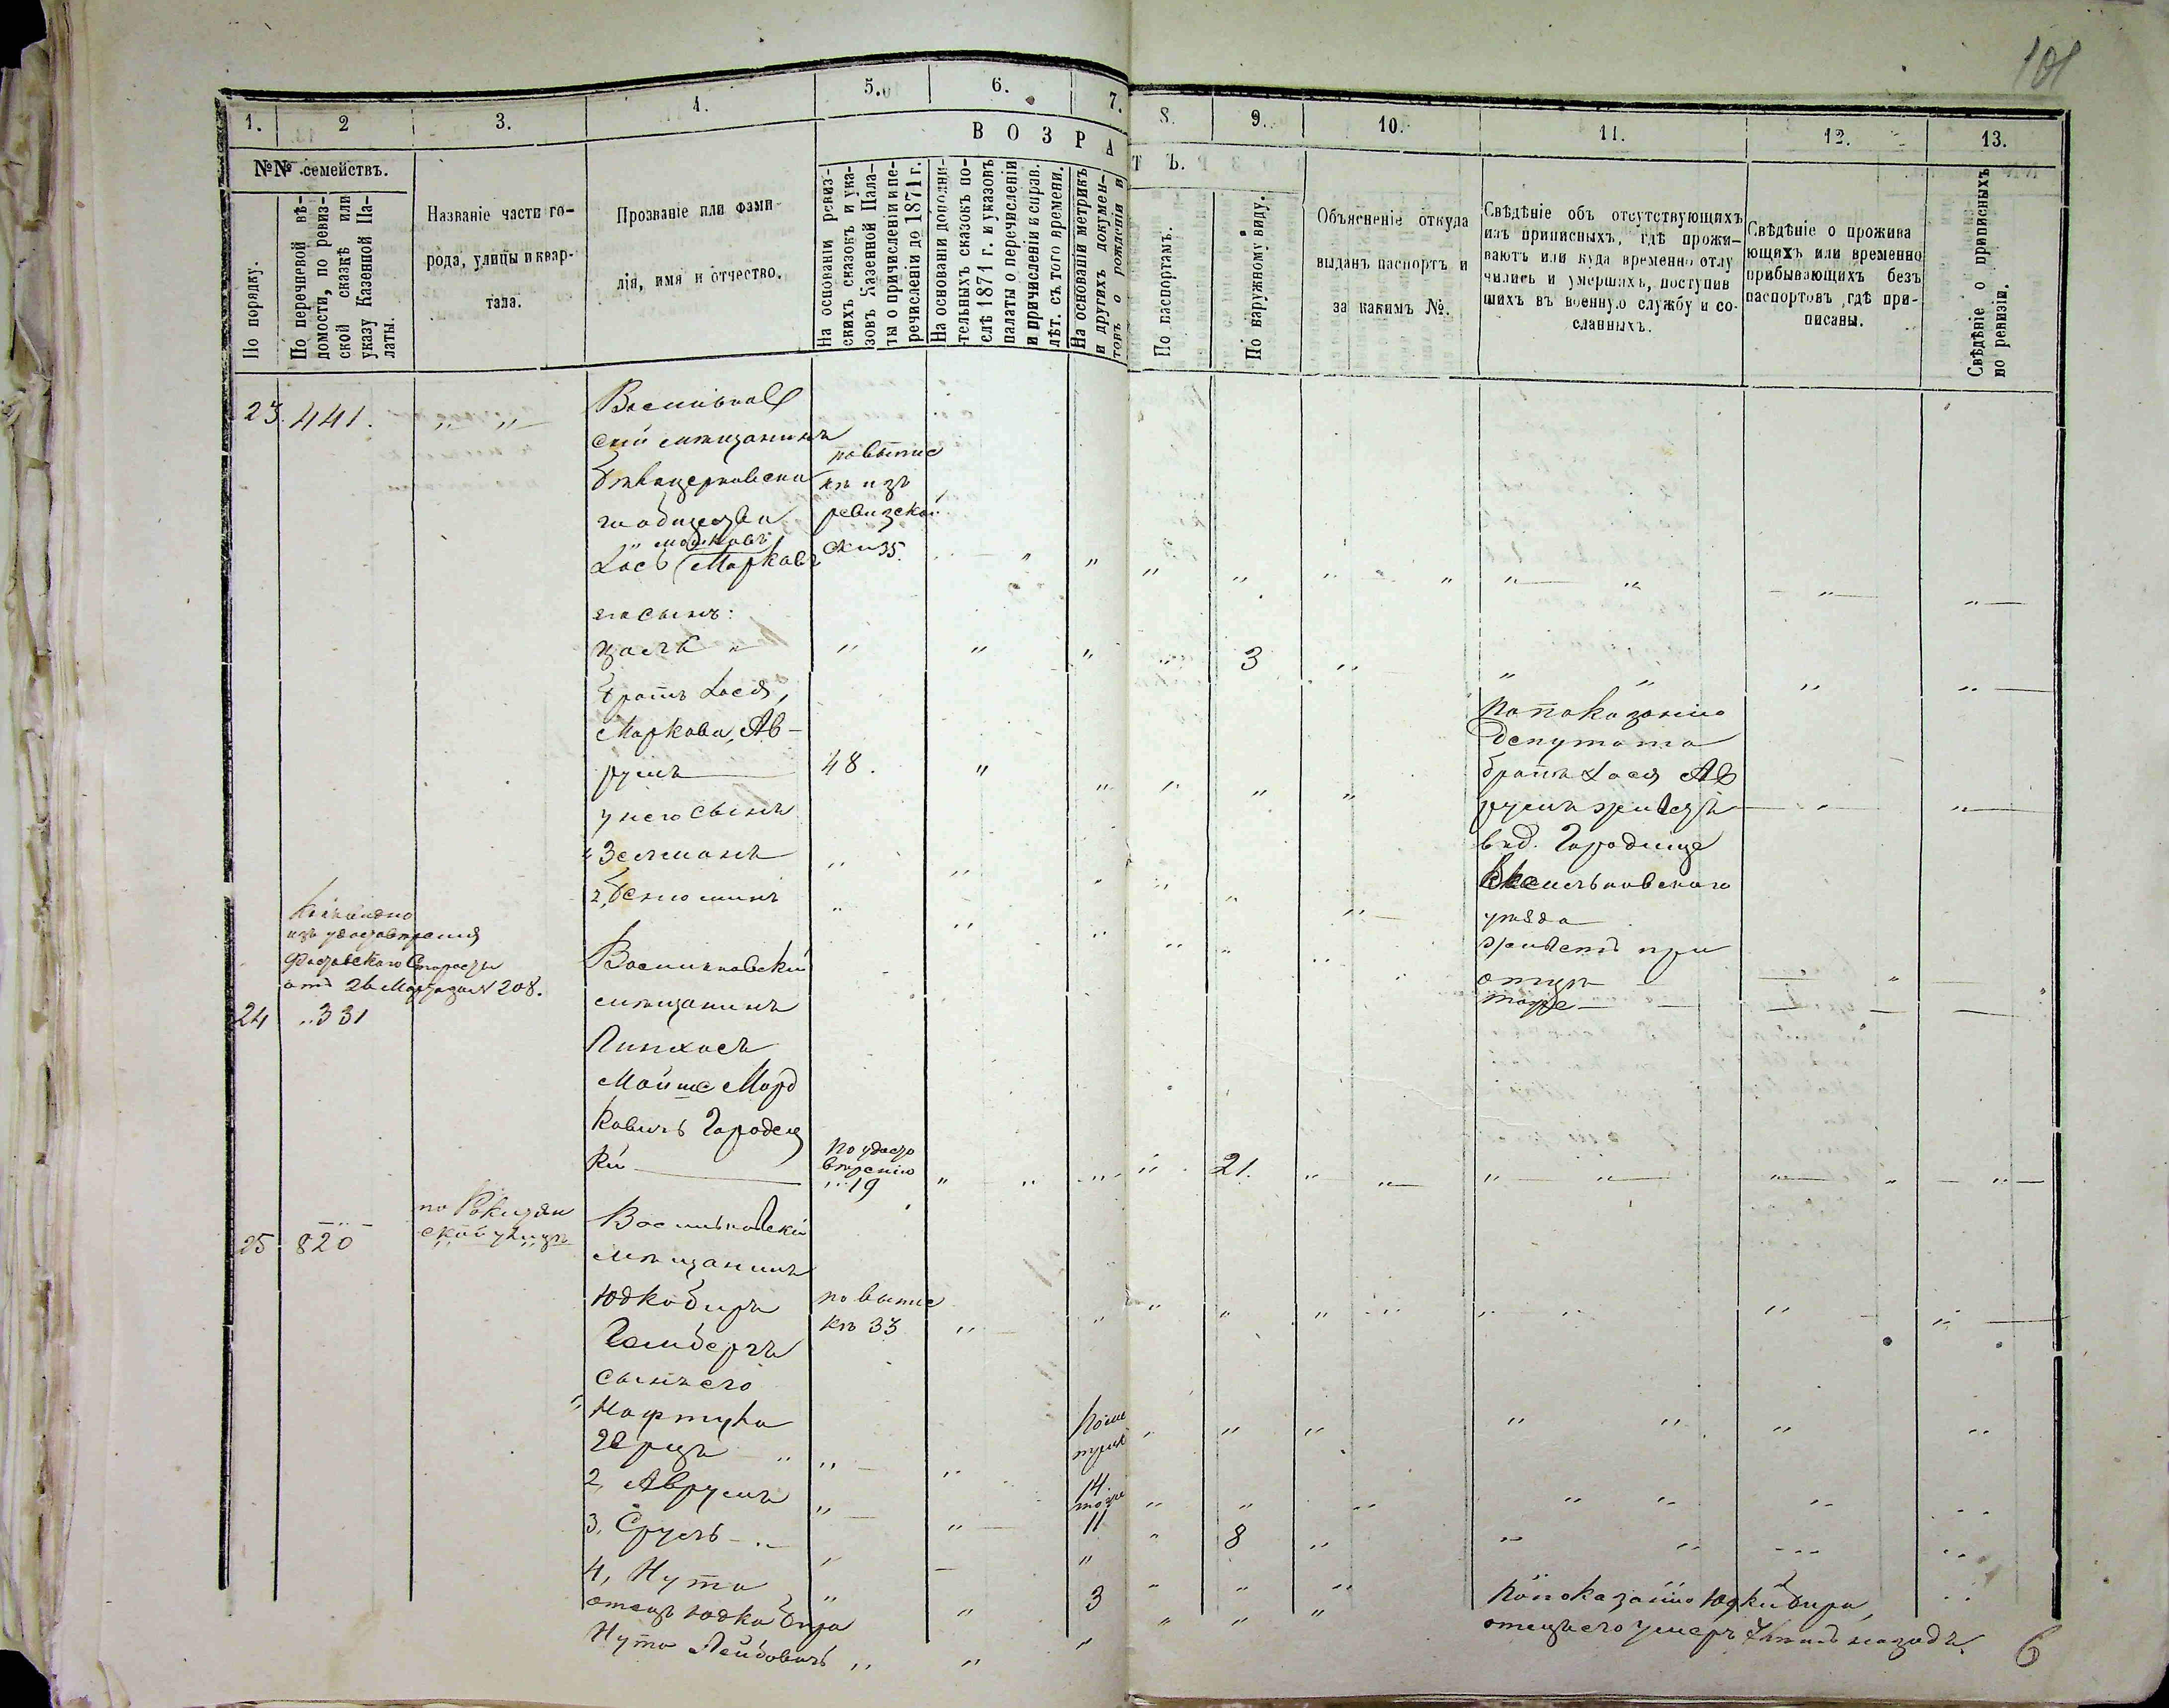 101
1.
2
3.
4.
5.
6.
7.
8.
9.
10.
11.
12.
13.
№№ семействъ.
В О З Р А
Т Ъ.
По порядку.
По перечневой вѣ-
домости, по ревиз-
ской сказкѣ или
указу Казенной Па-
латы.
Названіе части го-
рода, улицы и квар-
тала.
Прозваніе или фами-
лія, имя и отчество.
На основаніи ревиз-
скихъ сказокъ и ука-
зовъ Казенной Пала-
ты о причисленіи и пе-
речисленіи до 1871 г.
На основаніи дополни-
тельныхъ сказокъ по-
слѣ 1871 г. и указовъ
палаты о перечисленіи
и причисленіи и справ.
лѣт. съ того времени.
На основаніи метрикъ
и другихъ докумен-
товъ о рожденіи и
По паспортамъ.
По наружному виду.
Объясненіе откуда
выданъ паспортъ и
за какимъ №.
Свѣдѣніе объ отсутствующихъ
изъ приписныхъ, гдѣ прожи-
ваютъ или куда временно отлу
чились и умершихъ, поступив
шихъ въ военную службу и со-
сланныхъ.
Свѣдѣніе о прожива
ющихъ или временно
прибывающихъ безъ
паспортовъ гдѣ при-
писаны.
Свѣдѣніе о приписныхъ
по ревизіи.
23. 441. " "
Васильков
скій мѣщанинъ
Бѣлоцерковска
го общества
Мошковъ
Лось Марковъ
по выпис
кѣ изъ
ревизской
ски 35.
его сынъ:
3
братъ Лося,
Маркова, Ав-
румъ
48.
у него сынъ
Зельманъ
2, Беніоминъ
По показанію
депутата
братъ Лося Ав
румъ живетъ
в д. Городище
Васильковскаго
уѣзда
живетъ при
отцѣ
тоже
изъ удостовѣренія
Фастовскаго Старосты
отъ 26 Марта за № 208.
24 331
Васильковскій
мѣщанинъ
Пинхасъ
Мойше Морд
ковичъ Городец
кій
По удосто
вѣренію
19
21.
25 820
ской улицѣ
Васильковскій
мѣщанинъ
Юдко Бира
Геимбергъ
по выпис
кѣ 33
сынъ его
Нафтула
Герцъ
14.
2, Аврумъ
тоже
11
3, Сруль
8
4, Нута
3
отецъ Юдка Бира
Нута Лейбовичъ
По показанію Юдки Бира,
отецъ его умеръ 7 лѣтъ назадъ.
6